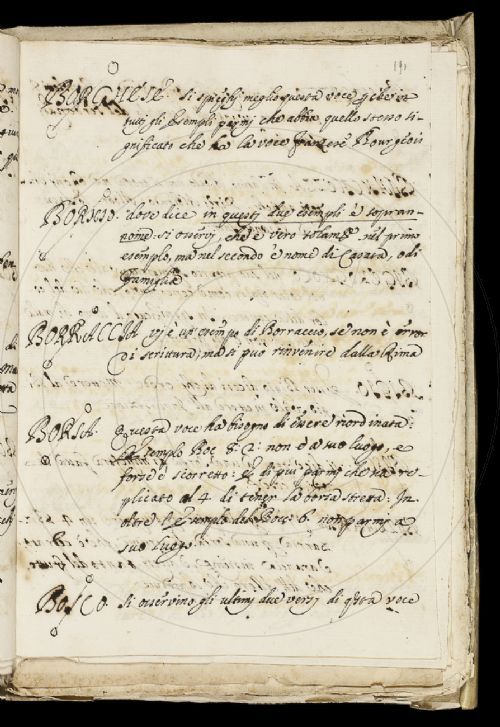 BORGHESE si spieghj meglio questa voce
tutti gli Esempli parmj che abbia quello stesso si-
gnificato che ha la voce franzese Bourgeois
BORNIO. dove dice in questj due esempli è sopran-
nome. si osservj, che è vero solamte nel primo
esemplo, ma nel secondo è nome di Casata, o di
famiglia
BORRACCIA vj è un esempio di Borraccio, se non è error
di scrittura, ma si può rinvenire dalla Rima
BORSA. Questa voce ha bisogno di essere riordinata:
Esemplo Boc. 8. 2: non è a suo luogo, e
forse è scorretto: E di più parmj che sia re-
plicato al 4 di tener la borsa stretta: In-
oltre l'Esemplo del Bocc: 6. non parmj a
suo luogo.
BOSCO. Si osservino gli ultimj due versj di qsta voce